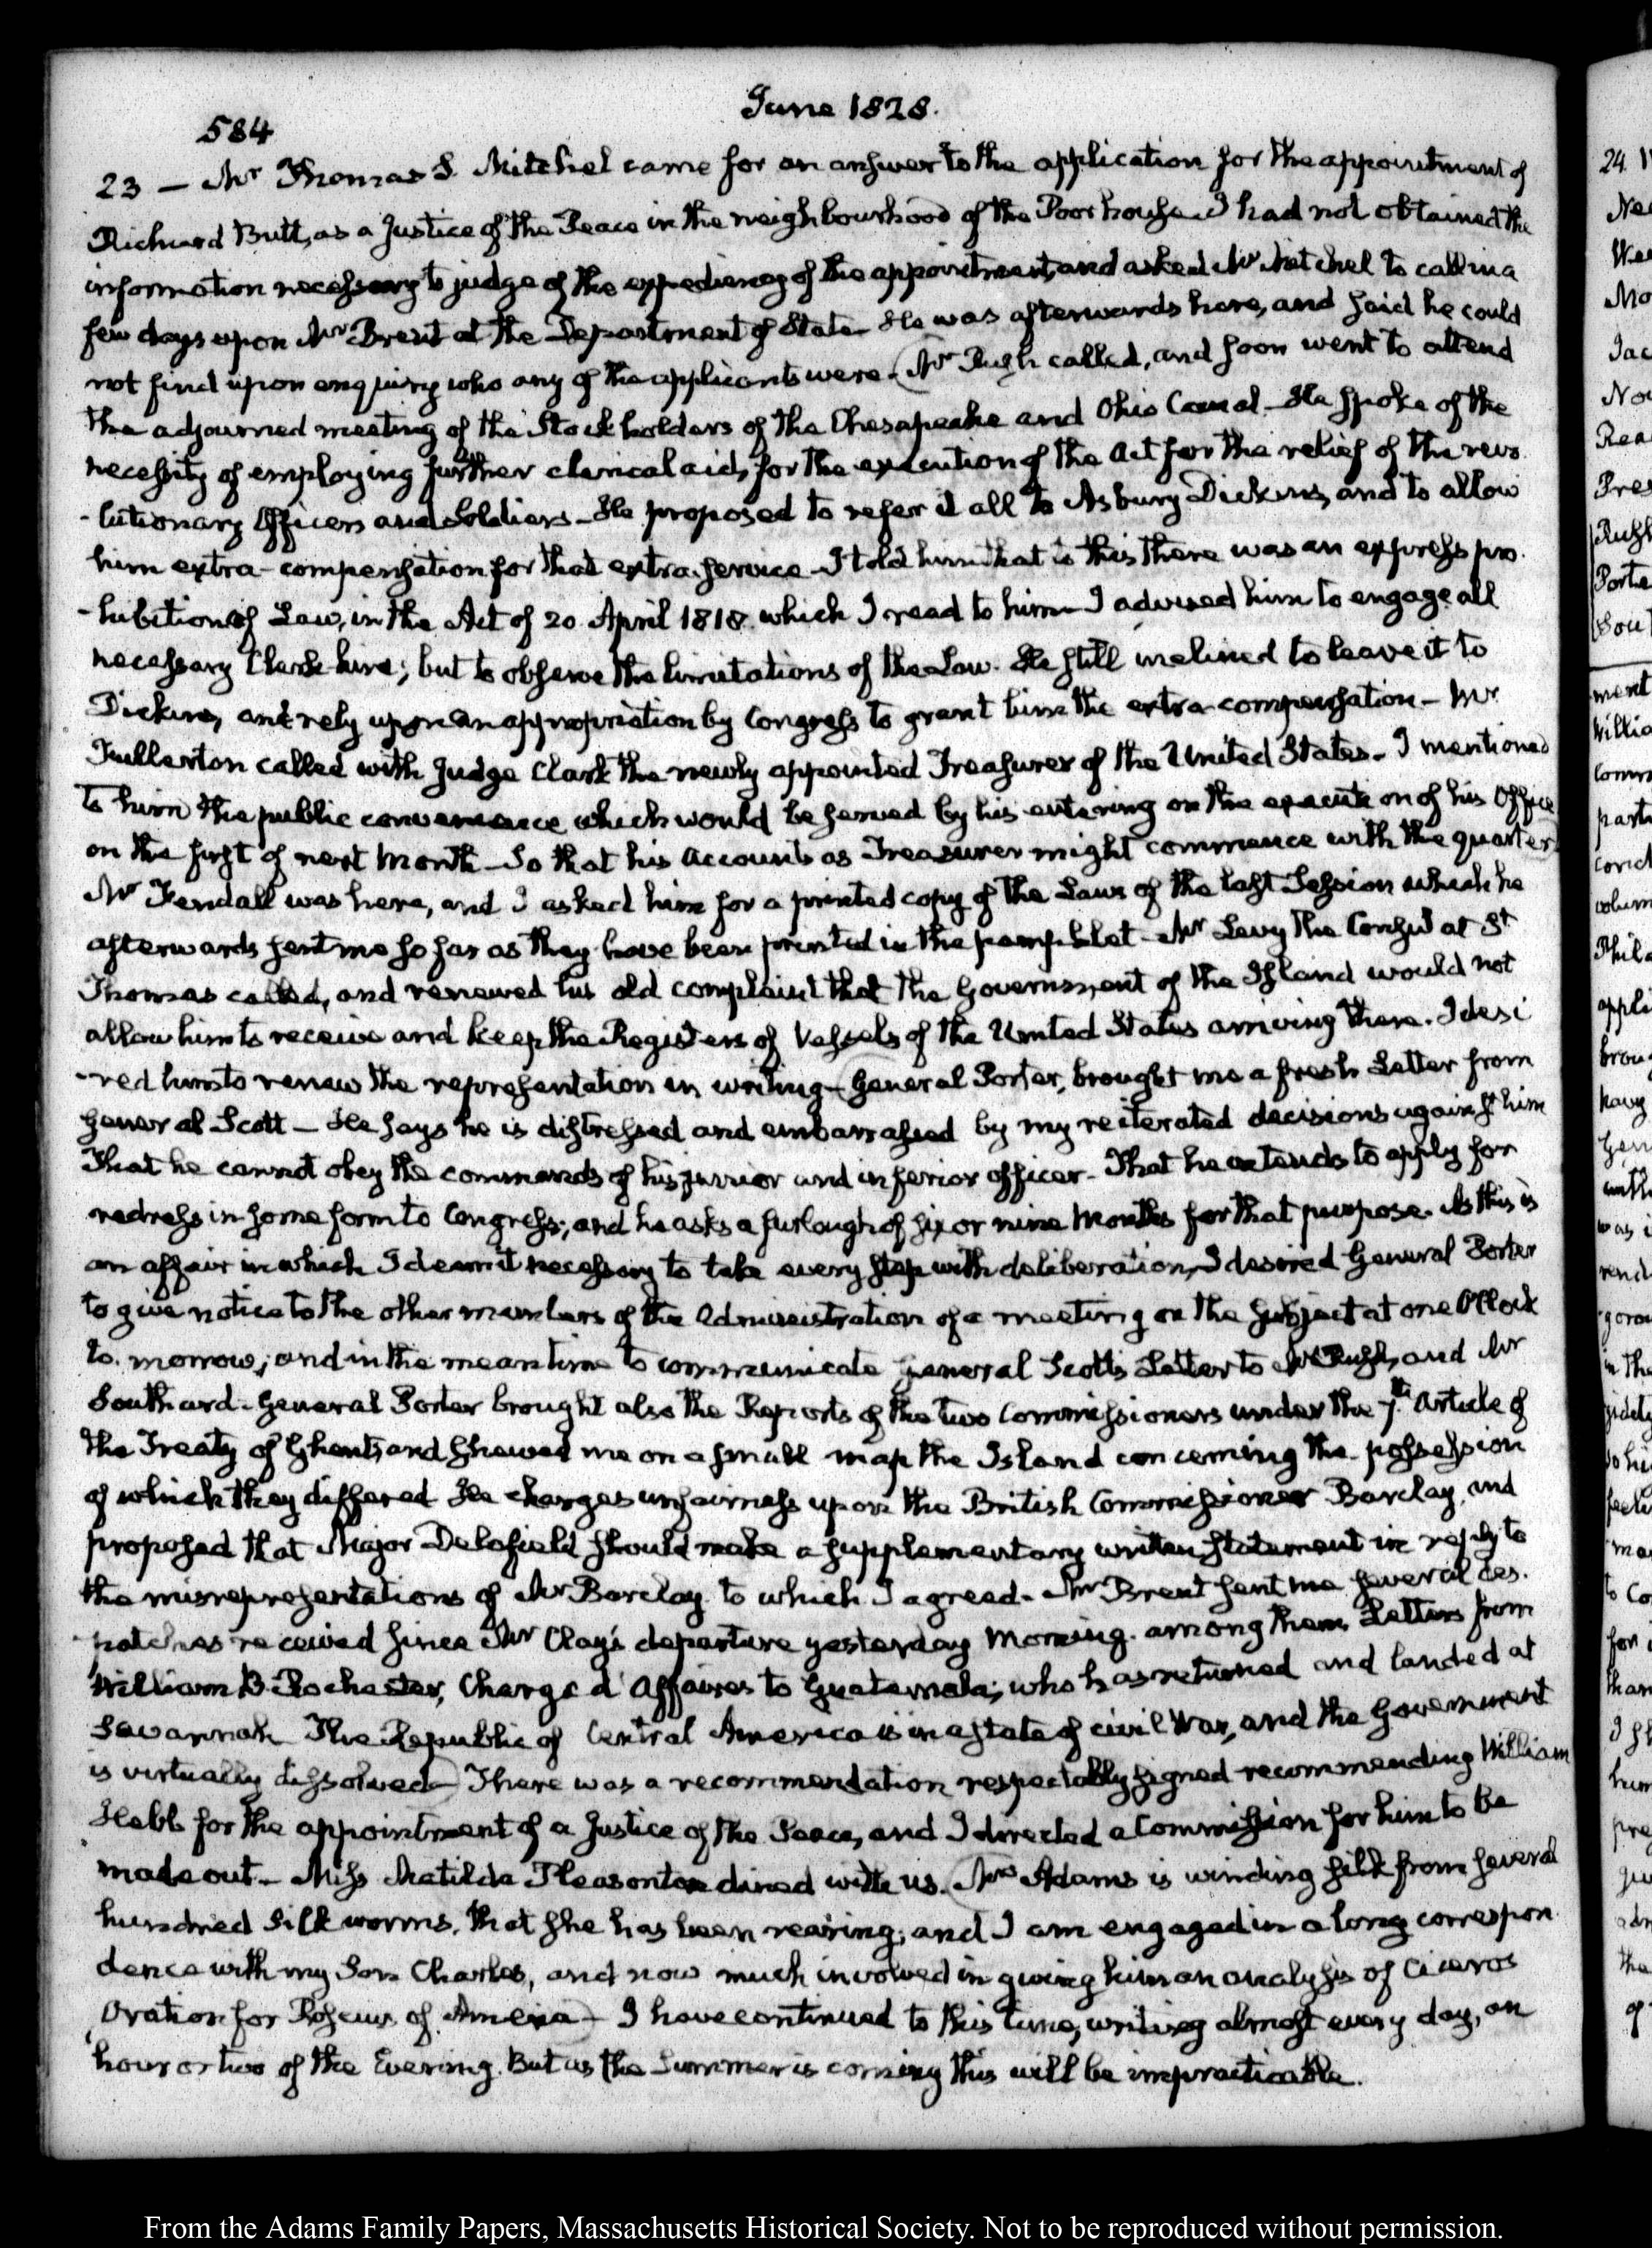 June 1828.
584
23 — Mr Thomas S. Mitchel came for an answer to the application for the appointment of
Richard Butt, as a Justice of the Peace in the neighbourhood of the Poor house. I had not obtained the
information necessary to judge of the expediency of the appointment, and asked Mr Mitchel to call in a
few days upon Mr Brent at the Department of State. He was afterwards here, and said he could
not find upon enquiry who any of the applicants were. Mr Rush called, and soon went to attend
the adjourned meeting of the Stockholders of the Chesapeake and Ohio Canal. He spoke of the
necessity of employing further clerical aid, for the execution of the Act for the relief of the revo
-lutionary Officers and Soldiers. He proposed to refer it all to Asbury Dickins, and to allow
him extra-compensation for that extra service. I told him that to this there was an express pro
-hibition of Law, in the Act of 20 April 1818. which I read to him. I advised him to engage all
necessary Clerk hire; but to observe the limitations of the Law. He still inclined to leave it to
Dickins, and rely upon an appropriation by Congress to grant him the extra compensation — Mr
Fullerton called with Judge Clark the newly appointed Treasurer of the United States. I mentioned
to him the public convenience which would be served by his entering on the execution of his Office
on the first of next Month — So that his Accounts as Treasurer might commence with the quarter.
Mr Kendall was here, and I asked him for a printed copy of the Laws of the last Session which he
afterwards sent me so far as they have been printed in the pamphlet. Mr Levy the Consul at St
Thomas called, and renewed his old complaint that the Government of the Island would not
allow him to receive and keep the Registers of Vessels of the United States arriving there. I desi
-red him to renew the representation in writing. General Porter, brought me a fresh Letter from
General Scott — He says he is distressed and embarrassed by my reiterated decisions against him
That he cannot obey the commands of his junior and inferior officer. That he intends to apply for
redress in some form to Congress; and he asks a furlough of six or nine Months for that purpose. As this is
an affair in which I deem it necessary to take every step with deliberation, I desired General Porter
to give notice to the other members of the Administration of a meeting on the subject at one O'Clock
to-morrow; and in the mean time to communicate General Scott's Letter to Mr Rush, and Mr
Southard. General Porter brought also the Reports of the two Commissioners under the 7th Article of
the Treaty of Ghent, and shewed me on a small map the Island concerning the possession
of which they differed. He charges unfairness upon the British Commissioner Barclay, and
proposed that Major Delafield should make a supplementary written statement in reply to
the misrepresentations of Mr Barclay. to which I agreed. Mr Brent sent me several des
-patches received since Mr Clay's departure yesterday Morning. among them Letters from
William B Rochester, Chargé d'Affaires to Guatemala; who has returned and landed at
Savannah. The Republic of Central America is in a state of civil War, and the Government
is virtually dissolved. There was a recommendation respectably signed recommending William
Hebb for the appointment of a Justice of the Peace, and I directed a Commission for him to be
made out. Miss Matilda Pleasonton dined with us. Mrs Adams is winding silk from several
hundred silk worms, that she has been rearing; and I am engaged in a long correspon
dence with my Son Charles, and now much involved in giving him an analysis of Ciceros
Oration for Roscius of Ameria. I have continued to this time, writing almost every day, an
hour or two of the Evening. But as the Summer is coming this will be impracticable.
From the Adams Family Papers, Massachusetts Historical Society. Not to be reproduced without permission.